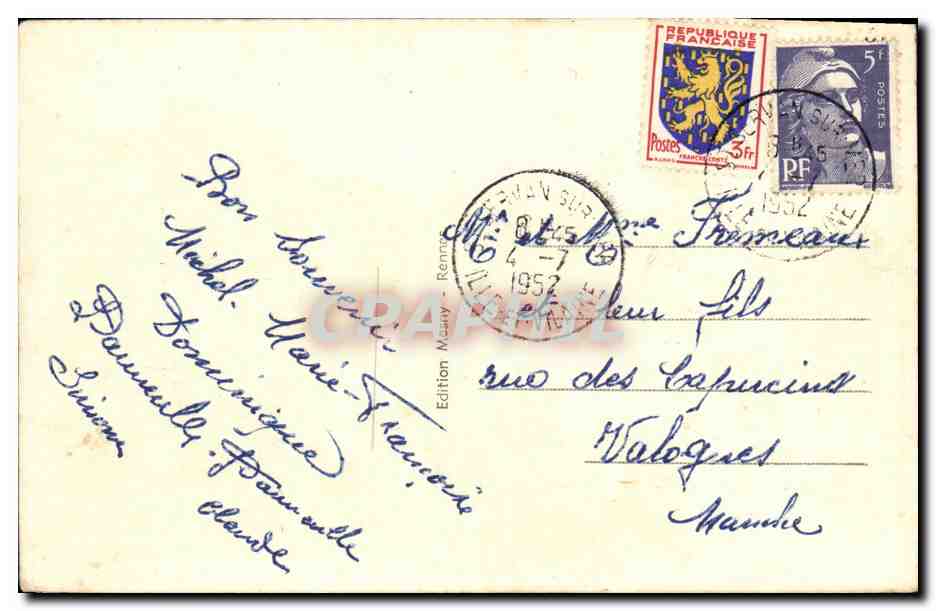 Bon Souvenir
Michel. Marie-Françoise
Dominique
Danielle. Dannaulle
Simone
Claude
Edition Masny - Rennes
REPUBLIQUE
FRANCAISE
Postes 3Fr
FRANCHE-COMTÉ
5F
POSTES
RF
GERMAN SUR
8H45
4-7
1952
ILLE-ET-VILAINE
GERMAN SUR
8H45
1952
ILLE-ET-VILAINE
Mr et Mme Fremeaux
et leur fils
rue des Capucins
Valognes
Manche
CPARTIL